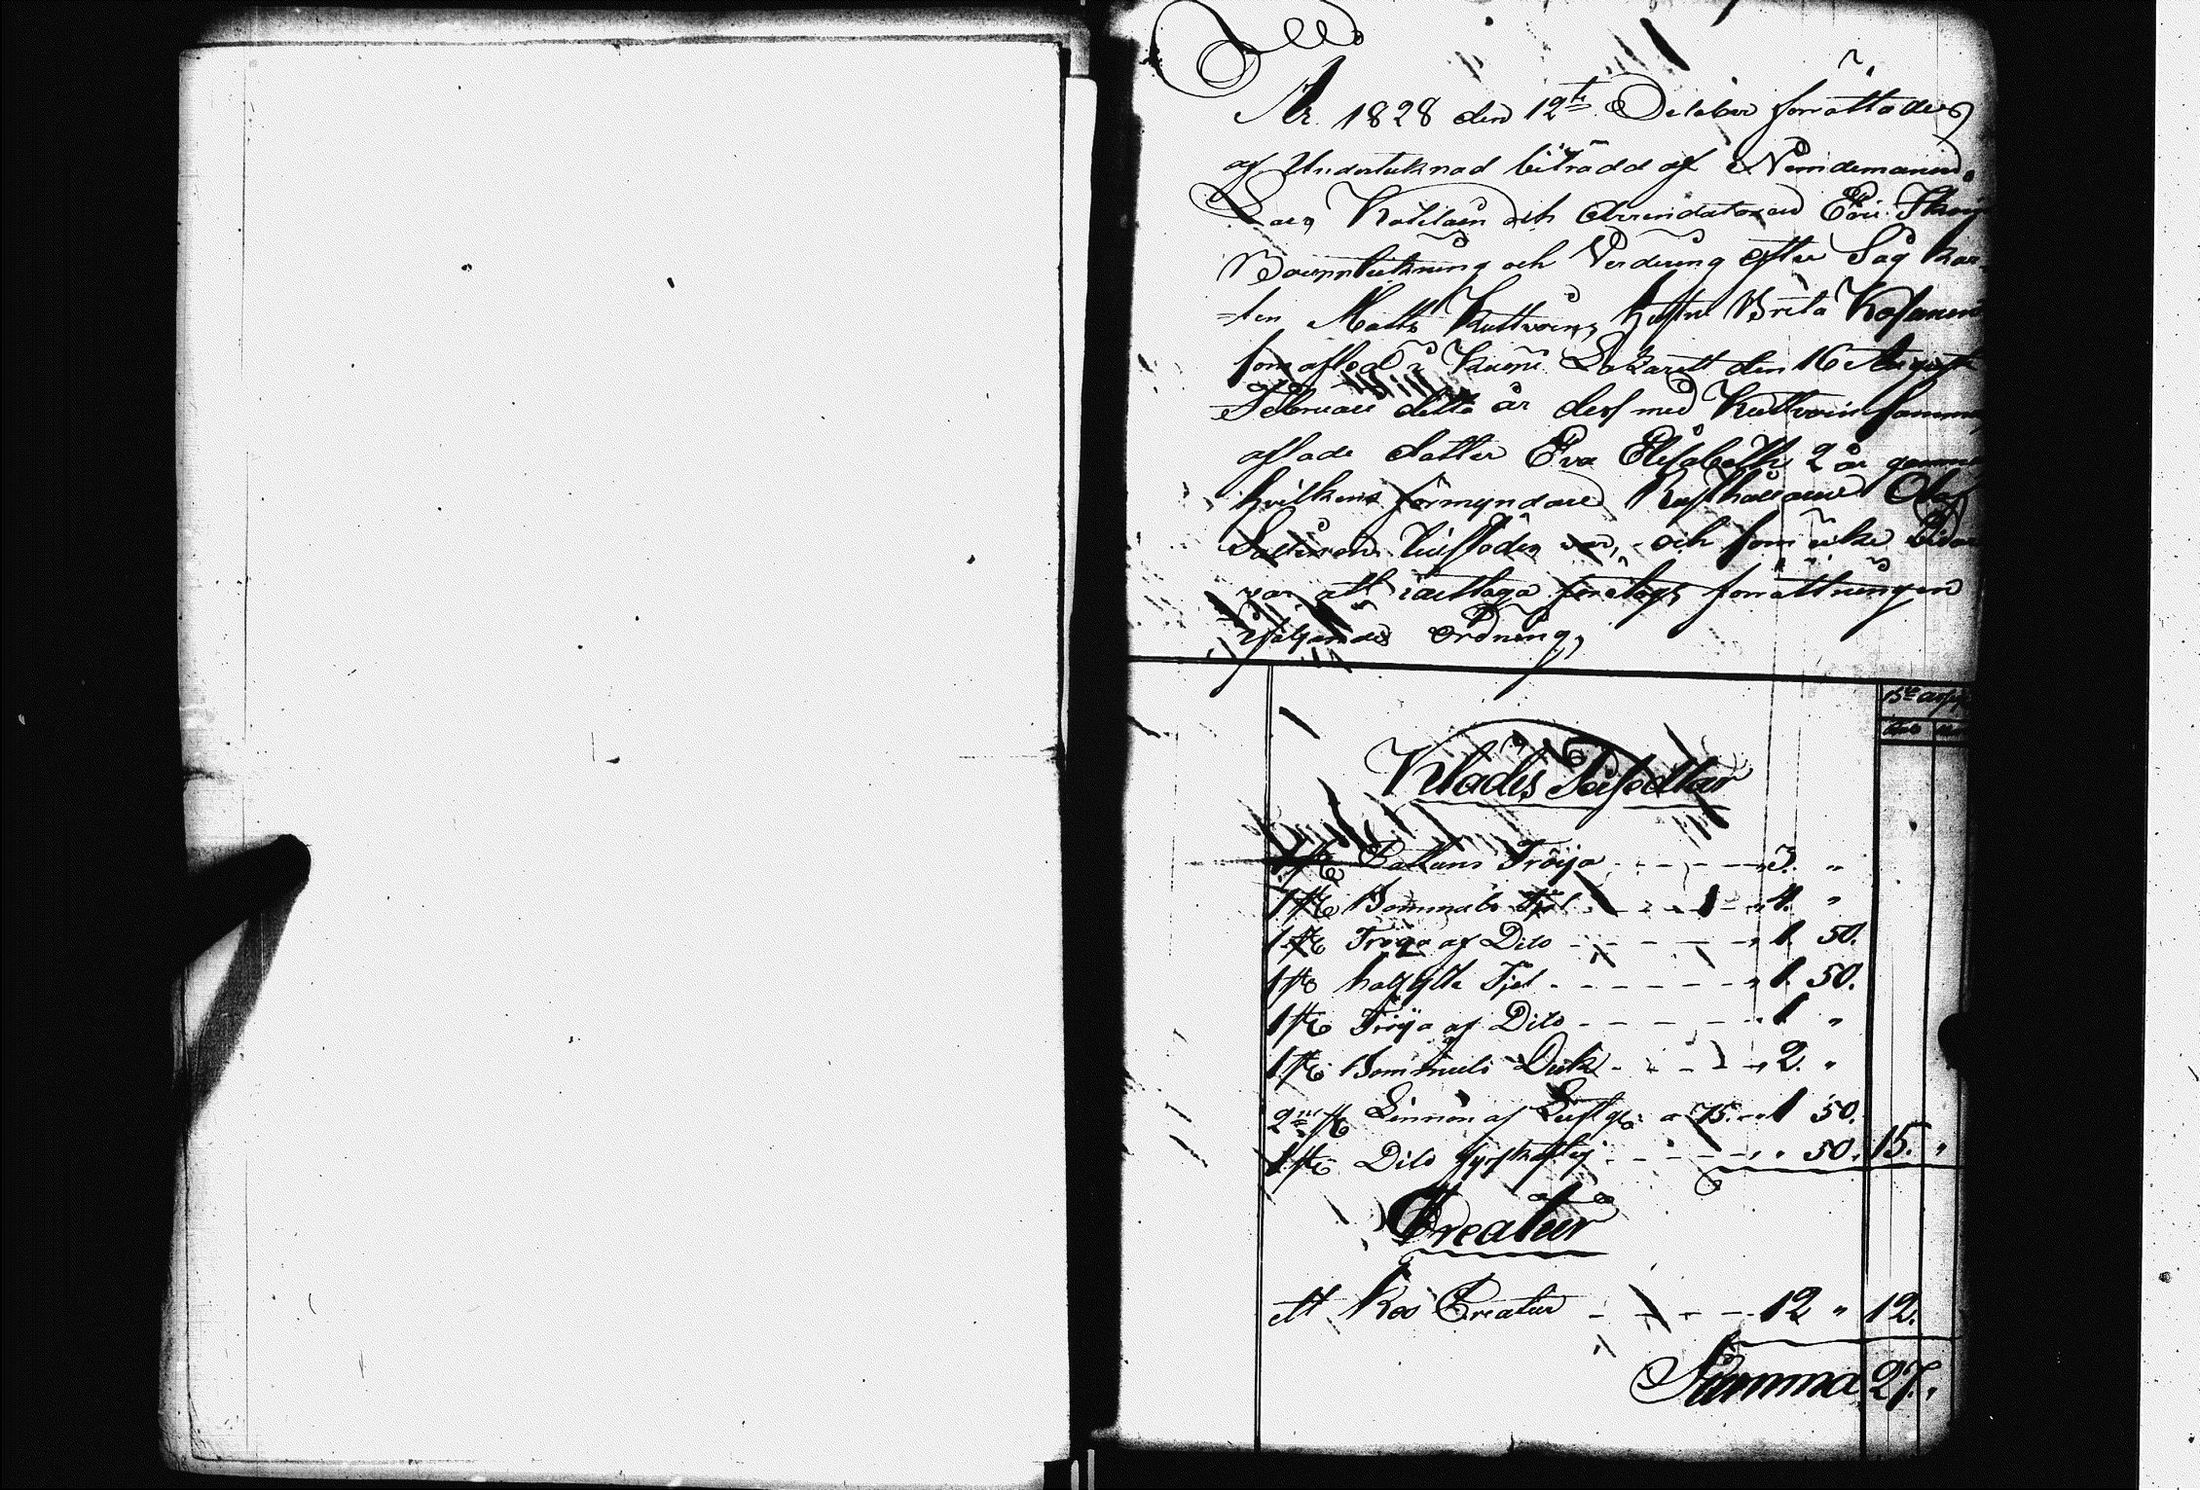 År 1828 den 12te October förrättades
af Undertecknad biträdd af Nämndemannen
Lars och Arrendatoren Eric
Bouppteckning och Verdering efter Såg Kar-
=len Matts Kuttvoins Hustru Brita Kosanen
som afled i Kuopio Lazarett den 16 August
Februari detta år dess med Kuttvoin samman
aflade dotter Eva Elisabeth 2 år gammal
hvilkens förmyndare Rusthållaren Olof
tillstädes var, och som icke vidare
var att iakttaga företogs förrättningen
i följande ordning,
Klädes Persedlar
1 st Tröija - - - - 3. "
1 st Bommuls Tjol - - - 4. "
1 st Tröja af Dito - - - - 1. 50.
1 st halfylle Tjol - - - - 1. 50.
1 st Tröja af Dito - - - - 1 "
1 st Bommuls Duk - - - 2. "
2ne st Linnon af a 75. - 1 50.
1 st Dito - - - - " 50. 15. "
Creatur
ett Koo Creatur - - - - 12 " 12.
Summa 27. "